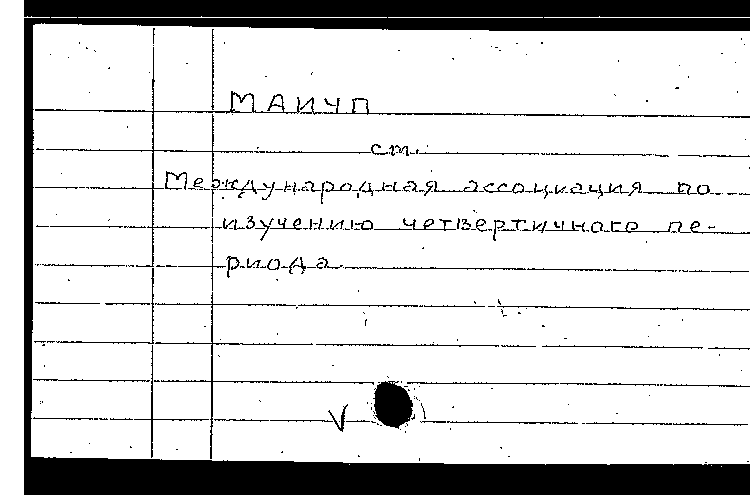 МАИЧП
см.
Международная ассоциация по
изучению четвертичного пе-
риода.
V